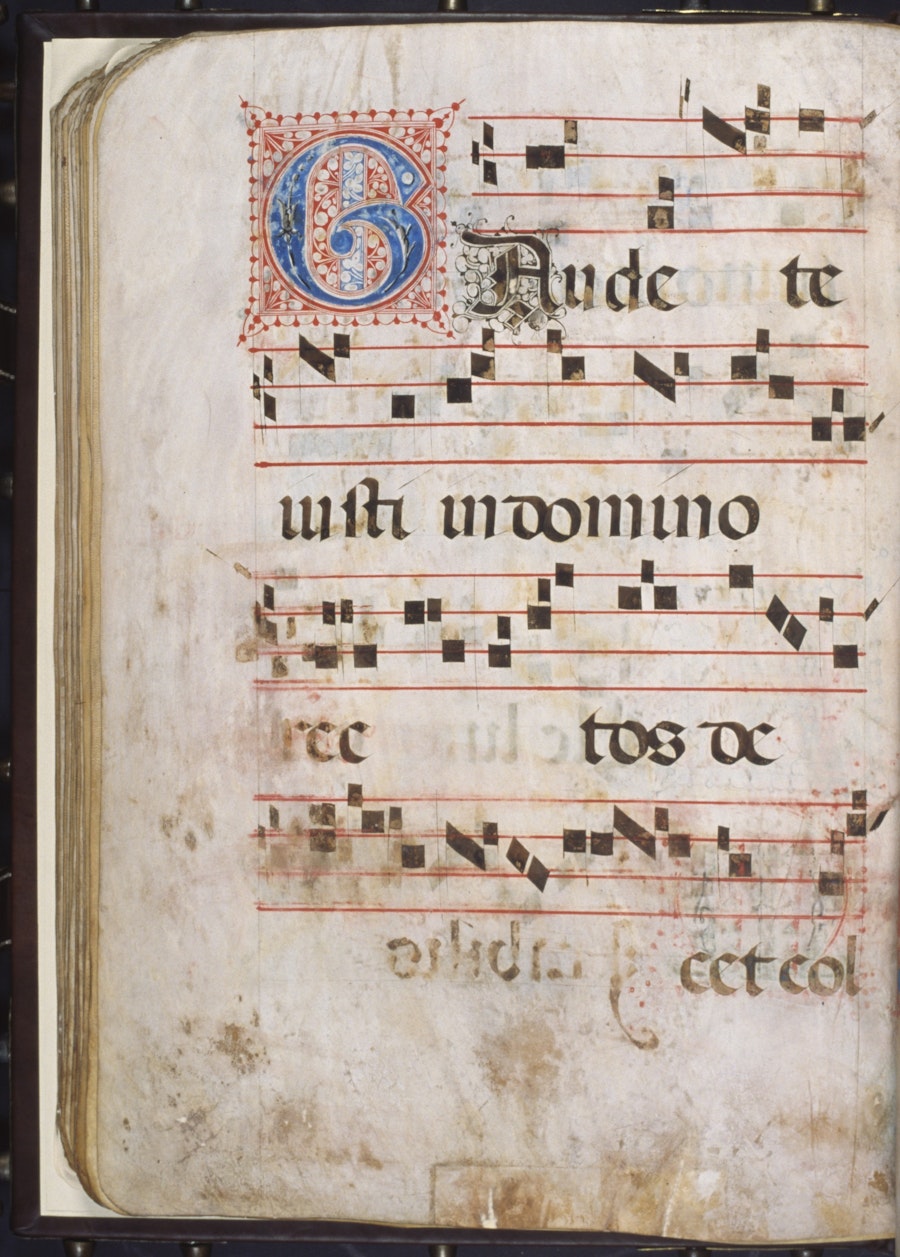 GAude te
iusti in domino
rec tos de
cet col